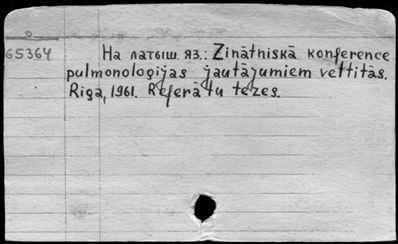 65364 На латыш. яз.: Zinātniskā konference
pulmonoloģijas jautājumiem veltītās.
Rīgā, 1961. Referātu tēzes.